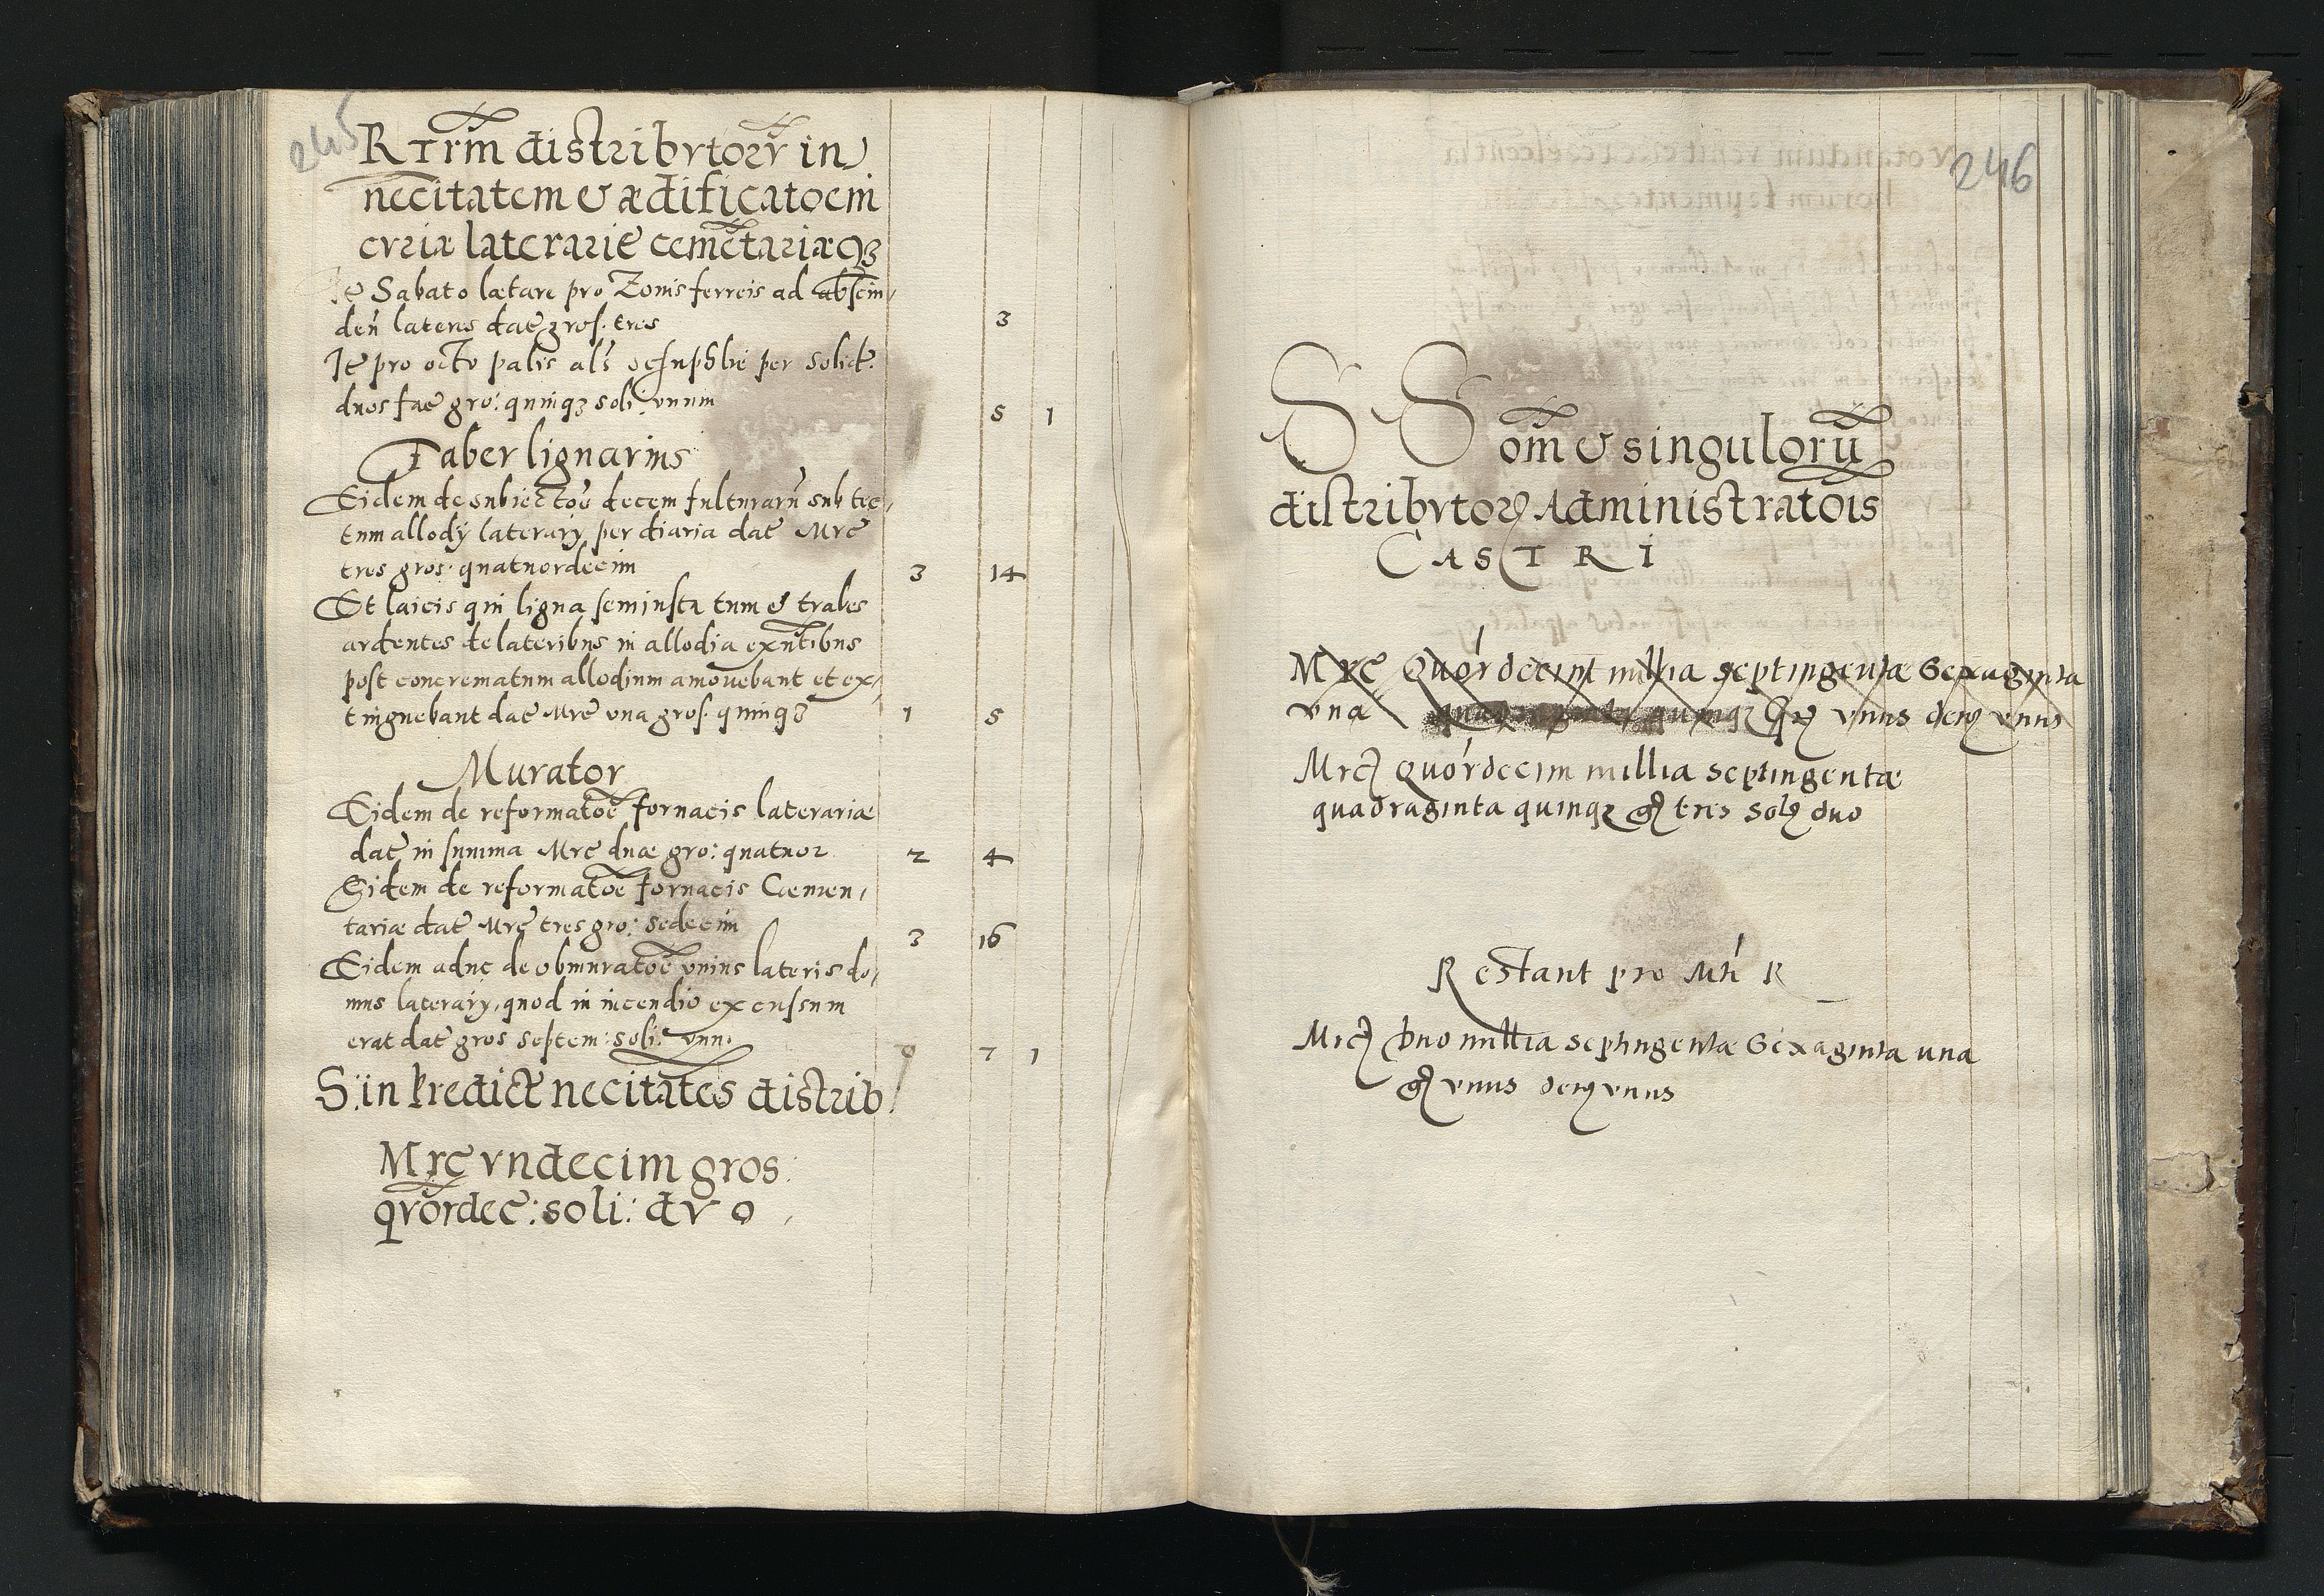 245
Rerum distributoru in
necitatem & ædificatoem
curiæ laterarie cemetariæq3
Ite Sabato lætare pro Zonis ferreis ad abscin,
den lateres date gros. tres 3
Ite pro octo palis als per solid.
duos fac gro: quinq3 soli. unum 5 1
Faber lignarius
Eidem de subiectoe decem fulturaru sub tec,
tum allodÿ laterarÿ per diaria date Mrc
tres gros. quatuordecim 3 14
Et laicis qui ligna semiusta tum & trabes
ardentes de lateribus in allodia exntibus
post concrematum allodium amovebant et ex,
tinguebant date Mrc una gros. quinq3 1 5
Murator
Eidem de reformatoe fornacis laterariæ
date in summa Mrc duæ gro: quatuor 2 4
Eidem de reformatoe fornacis Cæmen,
tariæ date Mrc tres gro: sedecim 3 16
Eidem adhc de obmuratoe unius lateris do,
mus laterarÿ, quod in incendio excussum
erat date gros septem: soli: unn. 7 1
S: in predict necitates distrib
Mrc undecim gros:
quordec: soli: duo
246
SS om & singuloru
distributor Administratois
CASTRI
Mrc Quordecim millia septingentæ Sexaginta
una quinq3 unus unus
Mrc quordecim millia septingentæ
quadraginta quinq3 gr tres Sol duo
Restant pro Mti R
Mrc Duo millia septingentæ Sexaginta una
gr unus den unus